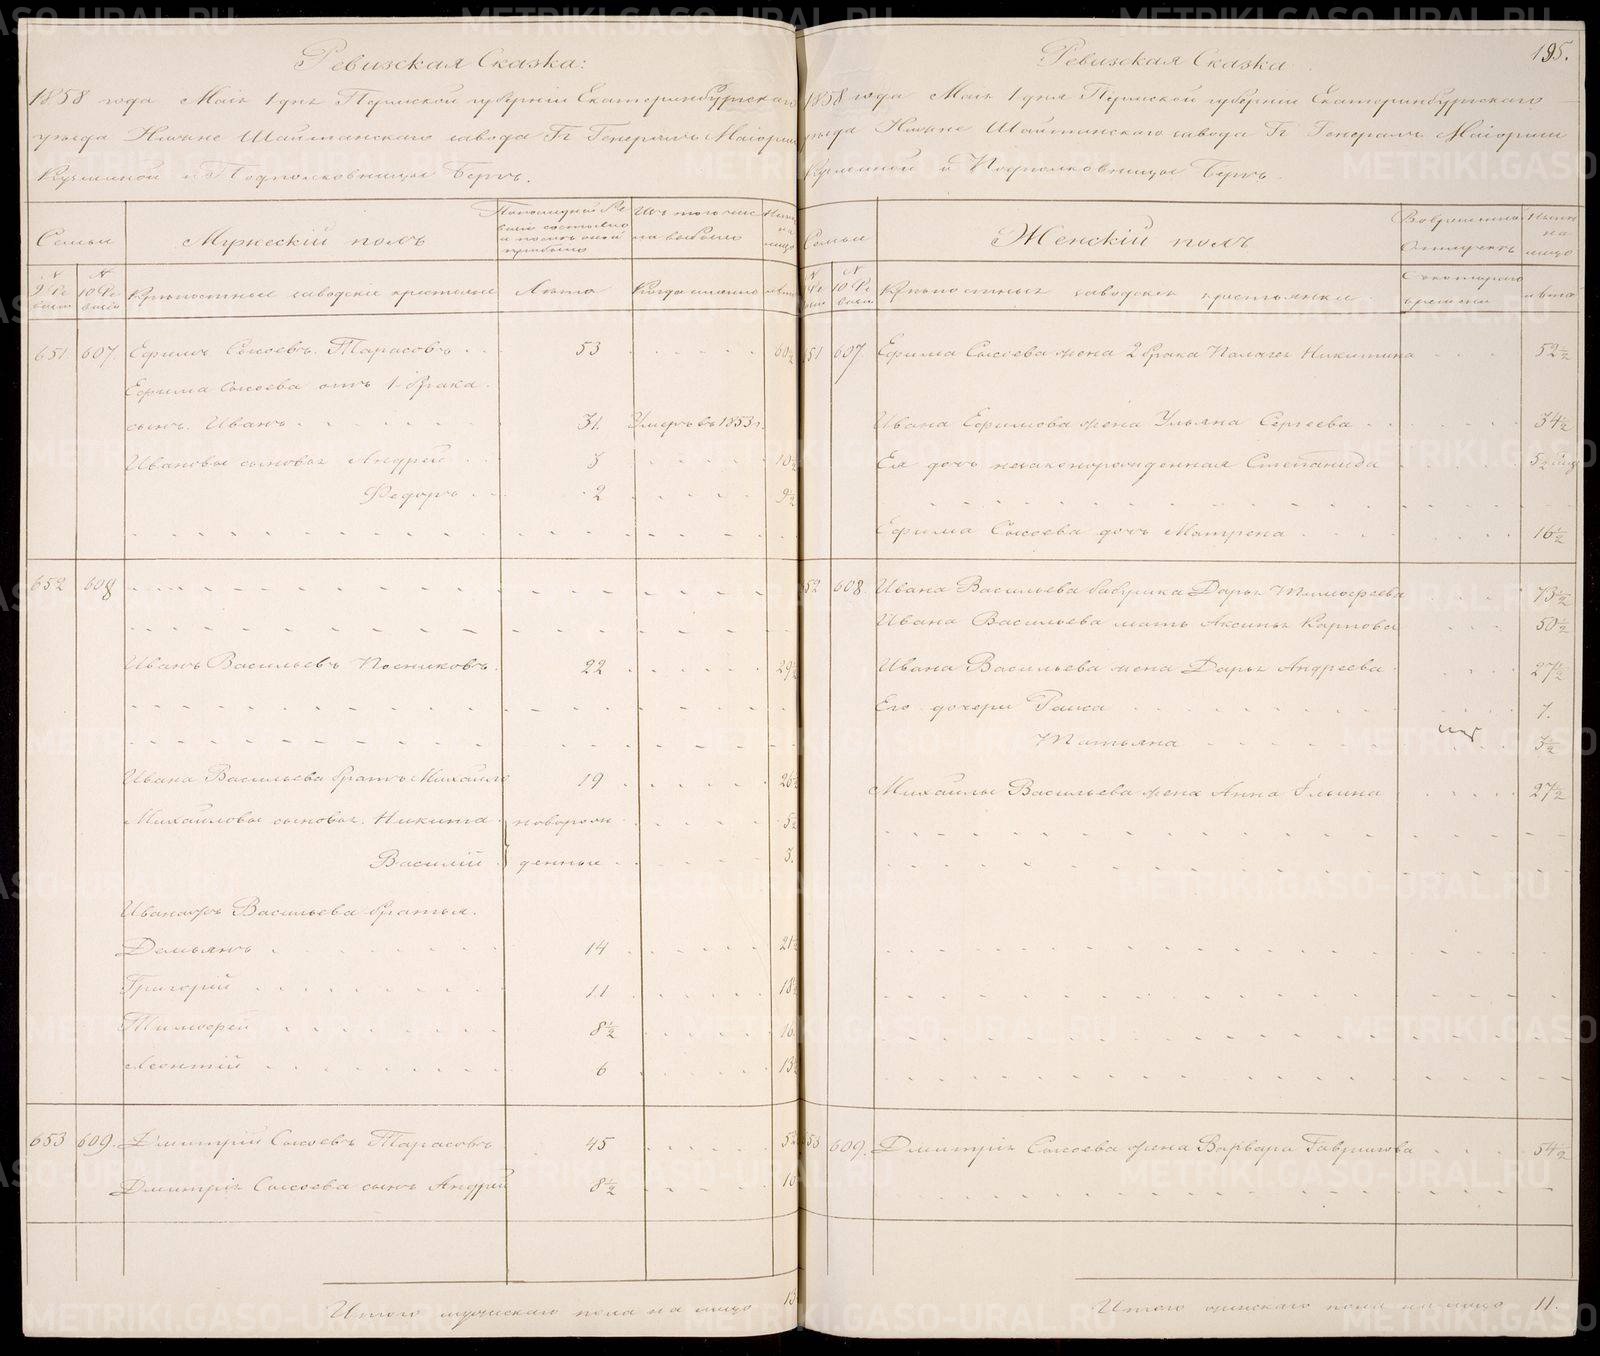 Ревизская Сказка:
1858 года Маія 1 дня Пермской губерніи Екатеринбургскаго
уезда Нижне Шайтанскаго завода Гг Генералъ Маіорши
Кузминой и Подполковницы Бергъ.
Семьи
Мужескій полъ
Изъ того числа выбыло
Ныне на лицо
№ 9 Ревизіи
№ 10 Ревизіи
Крепостные заводскіе крестьяне
Лета
Когда именно
лета
651 607. Ефимъ Сысоевъ Тарасовъ 53 60½
Ефима Сысоева отъ 1 брака
сынъ Иванъ 31. Умеръ въ 1853 г.
Ивановы сыновья Андрей 3 10½
Федоръ 2 9½
652 608
Иванъ Васильевъ Посниковъ 22 29½
Ивана Васильева братъ Михайло 19 26½
Михайловы сыновья Никита новорож 5½
Василій денные 3.
Ивановы Васильева братья
Демьянъ 14 21½
Григорій 11 18½
Тимофей 8½ 16
Леонтій 6 13½
653 609. Дмитрій Сысоевъ Тарасовъ 45 52
Дмитрія Сысоева сынъ Андрей 8½ 16
Итого мужескаго пола на лицо 13
195.
Ревизская Сказка
1858 года Маія 1 дня Пермской губерніи Екатеринбургскаго
уезда Нижне Шайтанскаго завода Гг Генералъ Маіорши
Кузминой и Подполковницы Бергъ.
Семьи
Женскій полъ
Ныне на лицо
№ 10 Ревизіи
Крепостныя заводскія крестьянки
С котораго времени
лета
51 607. Ефима Сысоева жена 2 брака Палагея Никитина 52½
Ивана Ефимова жена Ульяна Сергеева 34½
Ея дочь незаконорожденная Степанида 5½
Ефима Сысоева дочь Матрена 16½
52 608. Ивана Васильева бабушка Дарья Тимофеева 73½
Ивана Васильева мать Аксинья Карпова 50½
Ивана Васильева жена Дарья Андреева 27½
Его дочери Раиса 7.
Татьяна 3½
Михайлы Васильева жена Анна Ильина 27½
53 609. Дмитрія Сысоева жена Варвара Гаврилова 54½
Итого женскаго пола на лицо 11.
METRIKI.GASO-URAL.RU